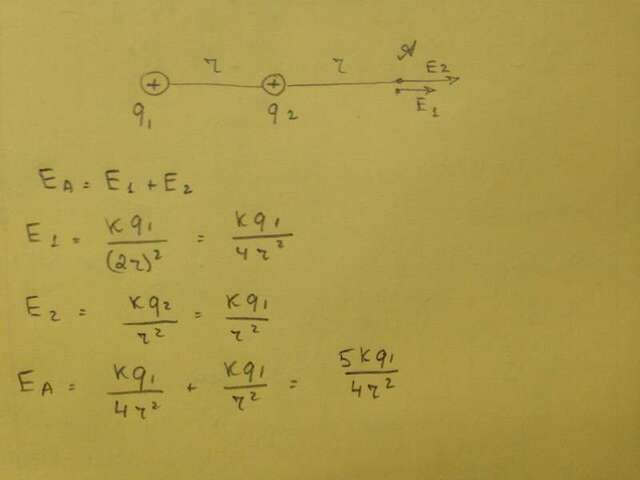 r r A E2
+ + E1
q1 q2
EA = E1 + E2
E1 = Kq1/(2r)² = Kq1/4r²
E2 = Kq2/r² = Kq1/r²
EA = Kq1/4r² + Kq1/r² = 5Kq1/4r²